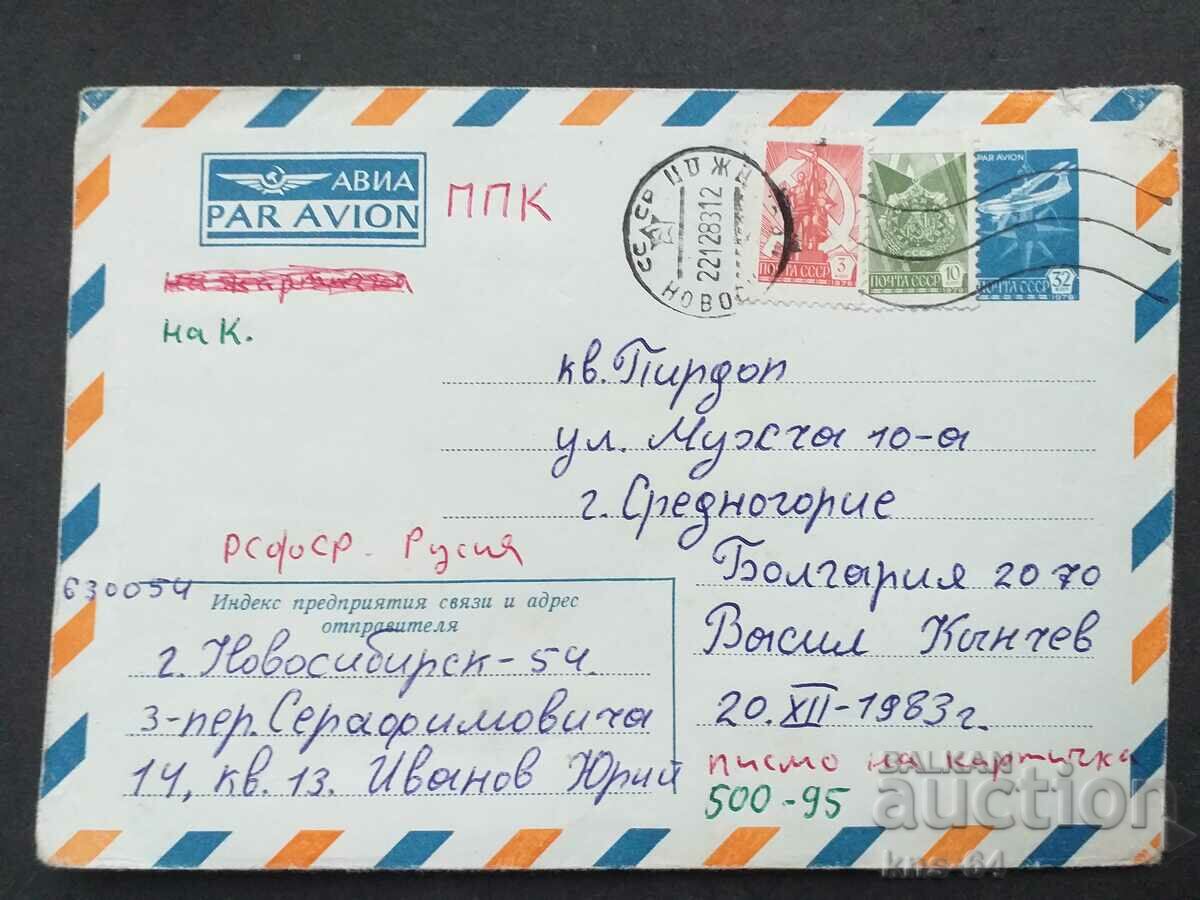 АВИА
PAR AVION
ППК
СССР
221283 12
НОВОС
3
ПОЧТА СССР
1976
10
ПОЧТА СССР
1976
PAR AVION
32
ПОЧТА СССР
1976
на К.
кв. Пирдоп
ул. Мужча 10-а
г. Средногорие
Болгария 2070
Высил Кынчев
20. XII - 1983 г.
писмо на картичка
500-95
РСФСР - Русия
630054
Индекс предприятия связи и адрес
отправителя
г. Новосибирск-54.
3-пер. Серафимовича
14, кв. 13. Иванов Юрий
BALKAN
auction
kns-64